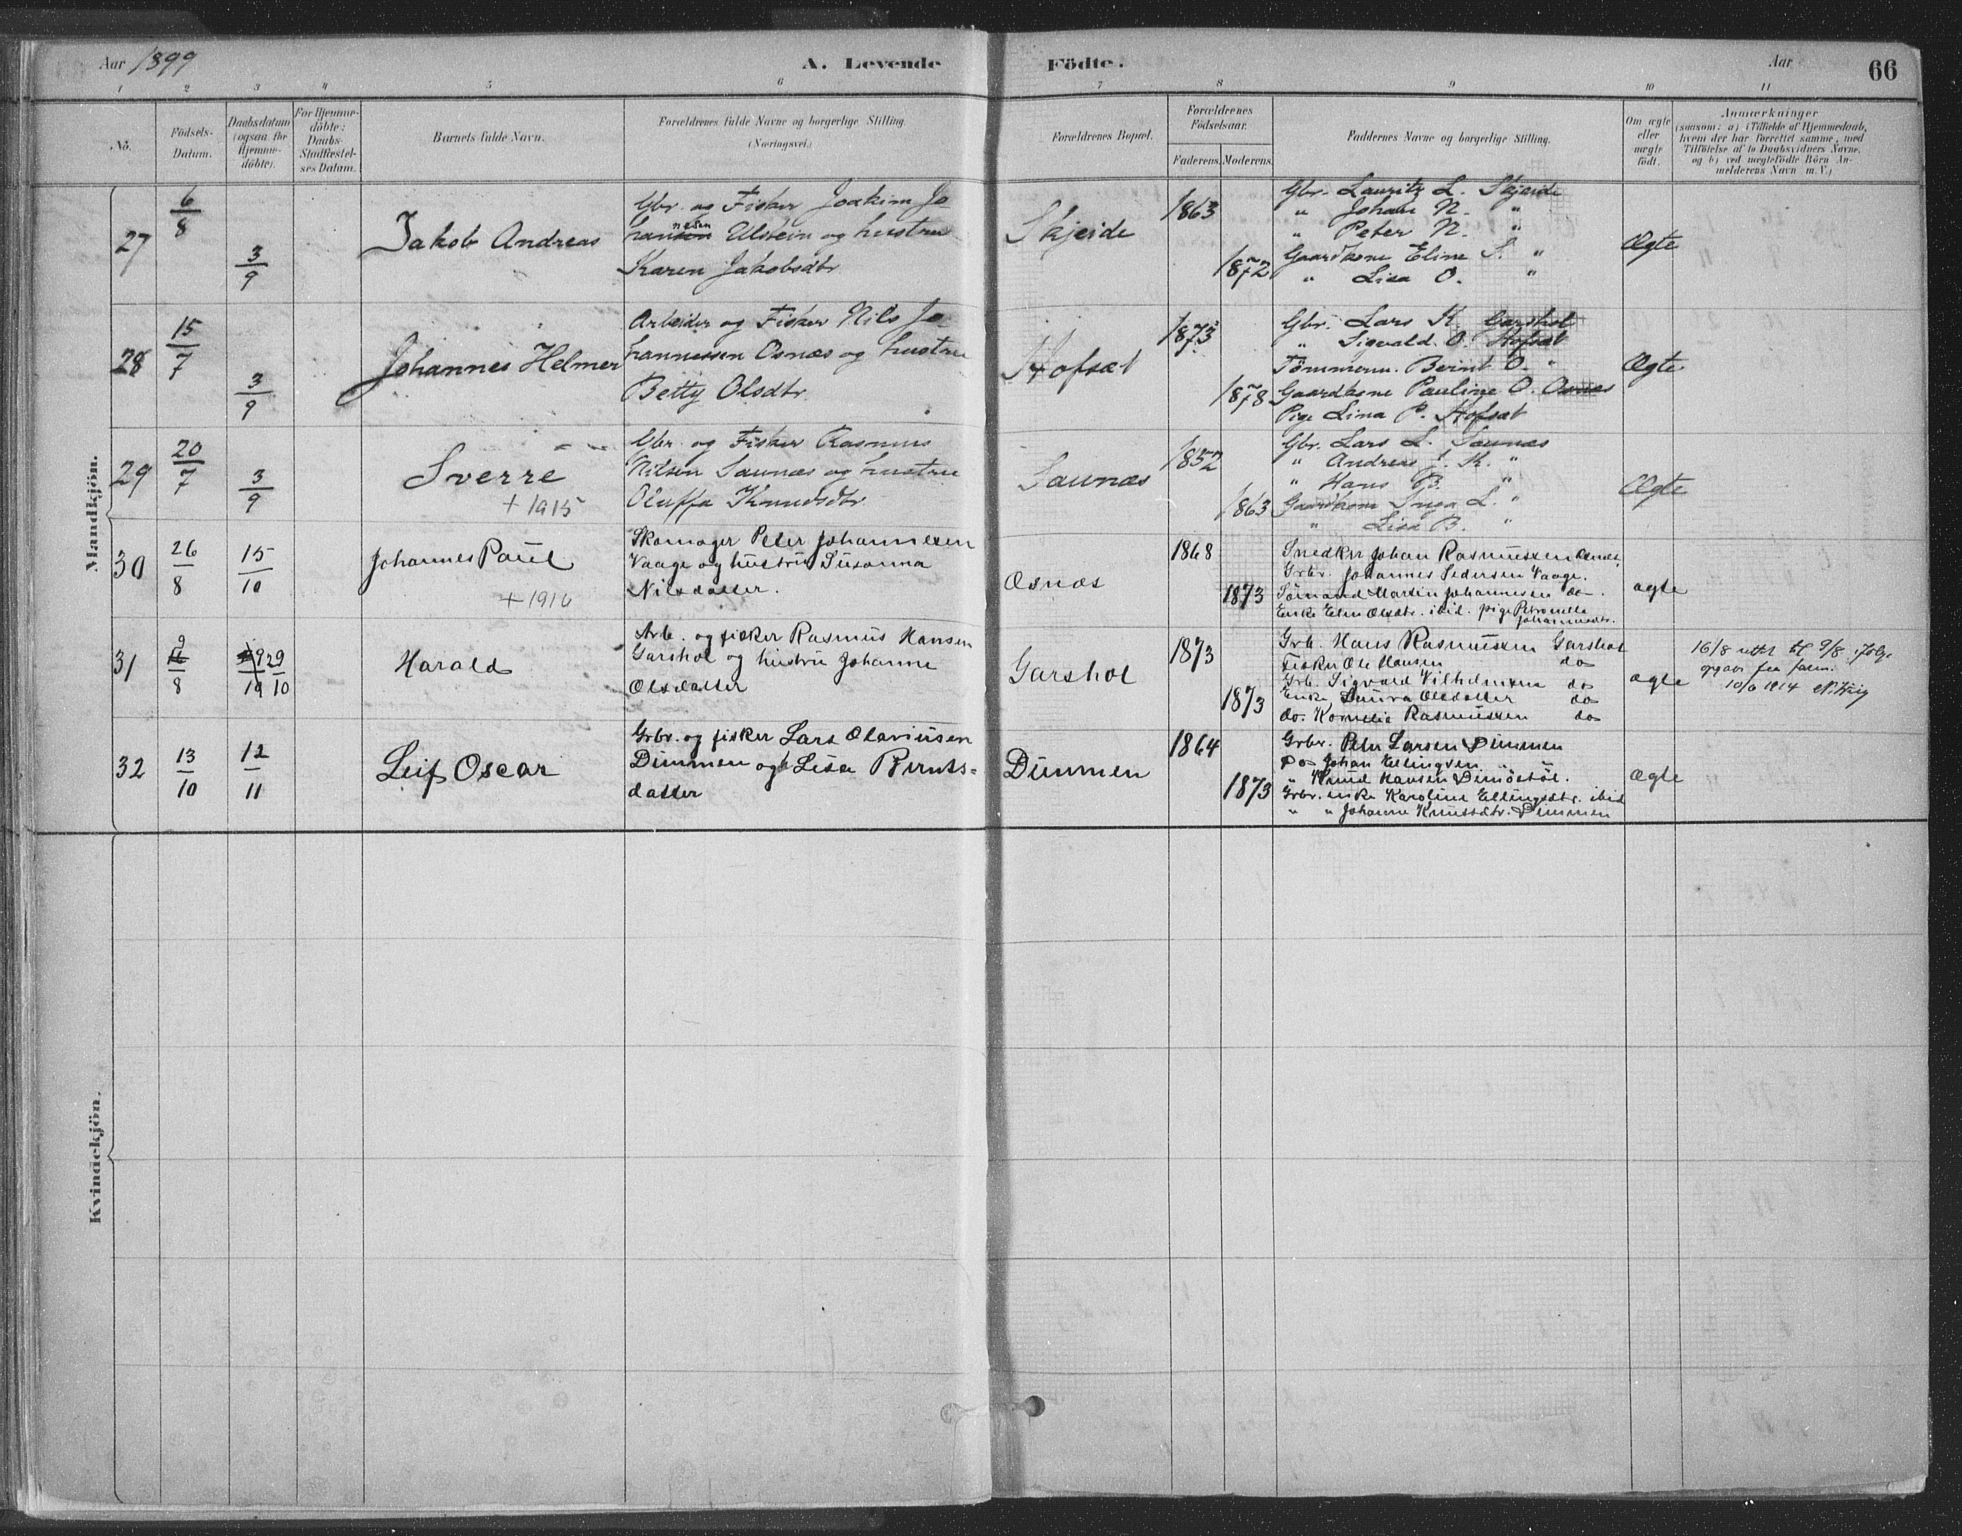 Aar 1899
A. Levende
Födte.
Aar
66
1 2 3 4 5 6 7 8 9 10 11
No.
Födsels-Datum.
Daabsdatum (ogsaa for Hjemmedöbte).
For Hjemmedöbte: Daabs-Stadfæstelses Datum.
Barnets fulde Navn.
Forældrenes fulde Navne og borgerlige Stilling. (Næringsvei.)
Forældrenes Bopæl.
Forældrenes Födselsaar.
Faderens. Moderens.
Faddernes Navne og borgerlige Stilling.
Om ægte eller uægte födt.
Anmærkninger
(saasom: a) i Tilfælde af Hjemmedaab, hvem der har forrettet samme, med Tilföielse af to Daabsvidners Navne, og b) ved uægtefödte Börn Anmelderens Navn m. V.)
Mandkjön.
27
6/8
3/9
Jakob Andreas
Gbr. og Fisker Joakim Jo
hannesen Ulstein og hustru
Karen Jakobsdtr.
Skjeide
1863
1872
Gbr. Lauritz L. Skjeide
" Johan N. "
" Peter N. "
Gaardkone Eline S. "
" Lisa O. "
Ægte
28
15/7
3/9
Johannes Helmer
Arbeider og Fisker Nils Jo
hannessen Osnæs og hustru
Betty Olsdtr.
Hofsæt
1873
1878
Gbr. Lars K. Garshol
" Sigvald O. Hofsæt
Tömmerm. Bernt O. "
Gaardkone Pauline O. Osnæs
Pige Lina P. Hofsæt
Ægte
29
20/7
3/9
Sverre
+ 1915
Gbr. og Fisker Rasmus
Nilsen Saunæs og hustru
Oluffa Knudsdtr.
Saunæs
1852
1863
Gbr. Lars L. Saunæs
" Andreas K. "
" Hans B. "
Gaardkone Inga L. "
" Lisa B. "
Ægte
30
26/8
15/10
Johannes Paul
+ 1916
Skomager Peter Johannesen
Vaage og hustru Susanna
Nilsdatter.
Osnæs
1868
1873
Snedker Johan Rasmussen Osnæs,
Grbr. Johannes Pedersen Vaage.
Sömand Martin Johannesen do.
Enke Elen Olsdtr. ibid. pige Petronelle
Johannesdtr.
ægte
31
9
16/8
29/10
Harald
Arb. og fisker Rasmus Hansen
Garshol og hustru Johanne
Olsdatter
Garshol
1873
1873
Grb. Hans Rasmussen Garshol
Fisker Ole Hansen do
Grb. Sigvald Vilhelmsen do
Enke Laura Olsdatter do
do. Kornelia Rasmussen do
ægte
16/8 rettet til 9/8 ifölge
opgave fra faren.
10/6 1914
32
13/10
12/11
Leif Oscar
Grbr. og fisker Lars Olaviusen
Dimmen og Lisa Bernts-
datter
Dimmen
1864
1873
Grbr. Peter Larsen Dimmen
Do Johan Ellingsen "
" Knud Hansen Dimöstöl.
Grbr. enke Karoline Ellingsdtr. ibid
" " Johanne Knutsdtr. Dimmen
ægte
Kvindekjön.